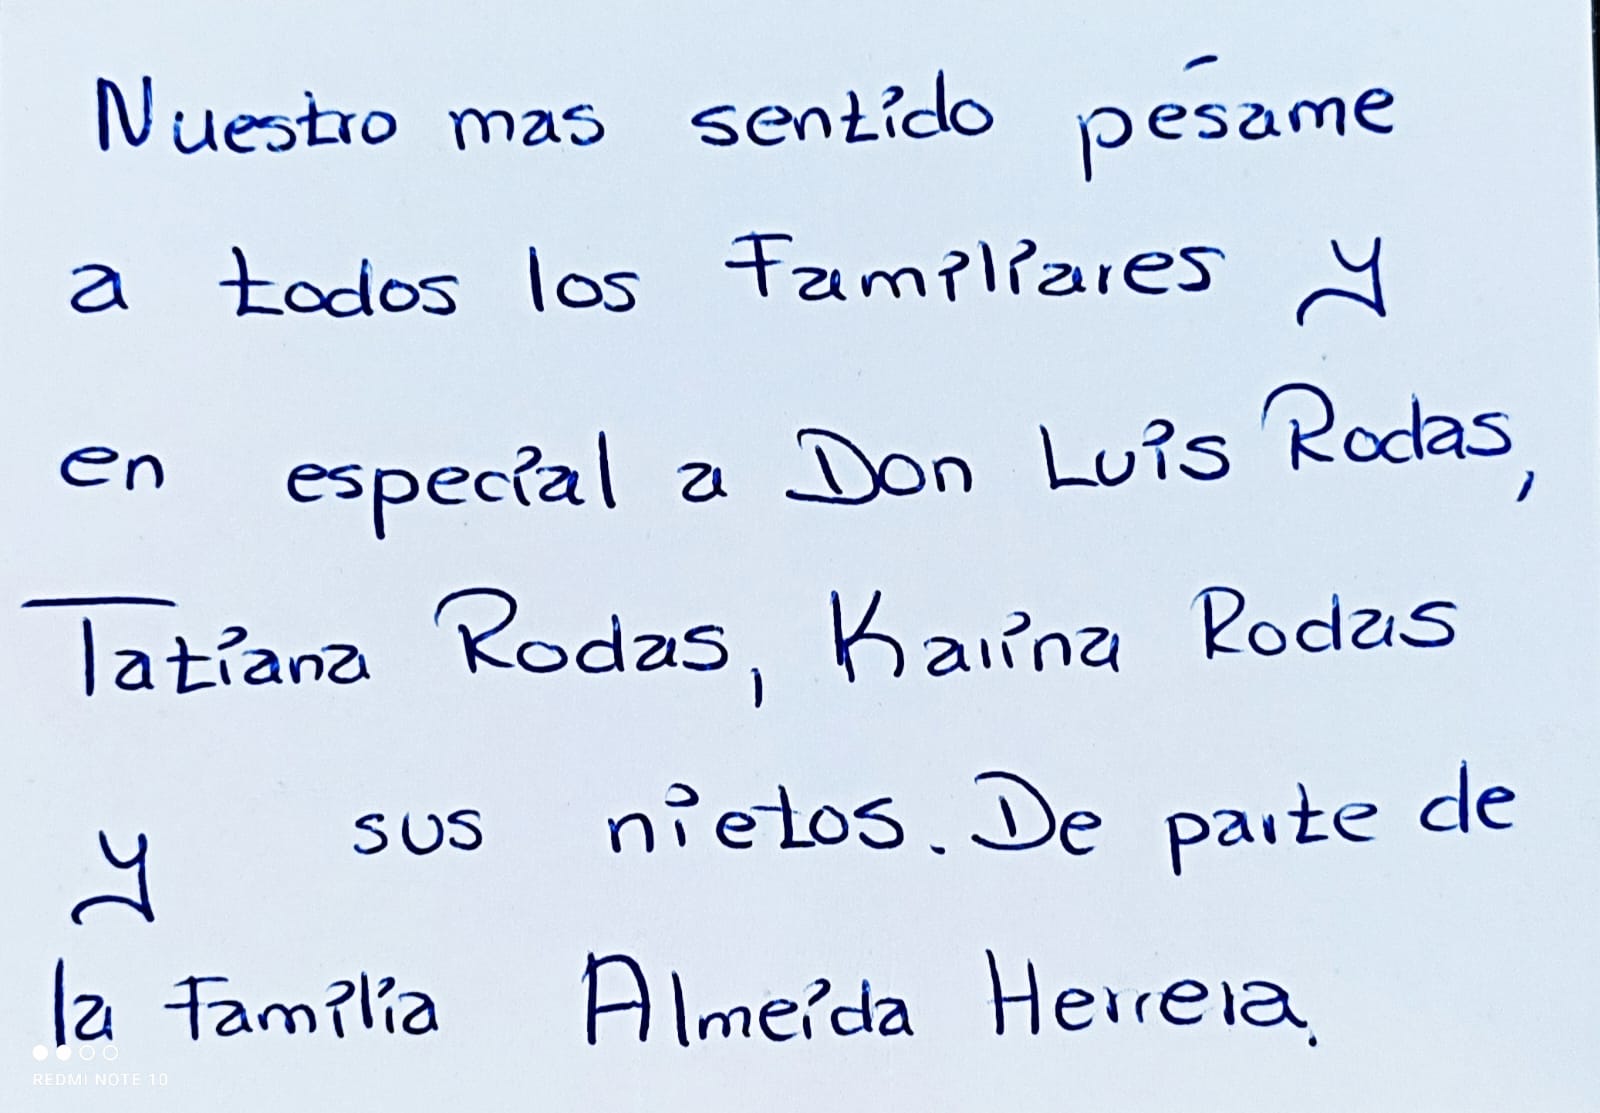 Nuestro mas sentido pésame
a todos los Familiares y
en especial a Don Luis Rodas,
Tatiana Rodas, Karina Rodas
y sus nietos. De parte de
la familia Almeida Herrera.
REDMI NOTE 10